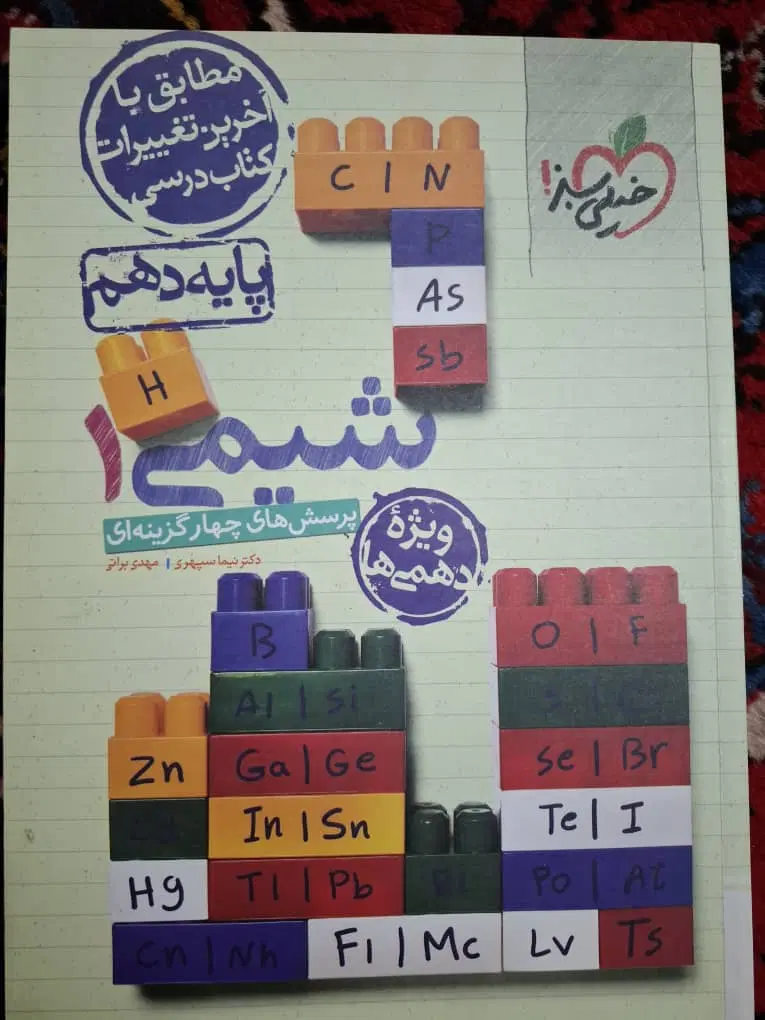 مطابق با
آخرین تغییرات
کتاب درسی
خیلی سبز!
C | N
P
As
Sb
پایه دهم
H
شیمی ۱
پرسش‌های چهارگزینه‌ای
دکتر نیما سپهری | مهدی براتی
ویژهٔ
دهمی‌ها
B
O | F
Al | Si
S |
Zn
Ga | Ge
Se | Br
In | Sn
Te | I
Hg
Tl | Pb
Bi
Po | At
Cn | Nh
Fl | Mc
Lv
Ts